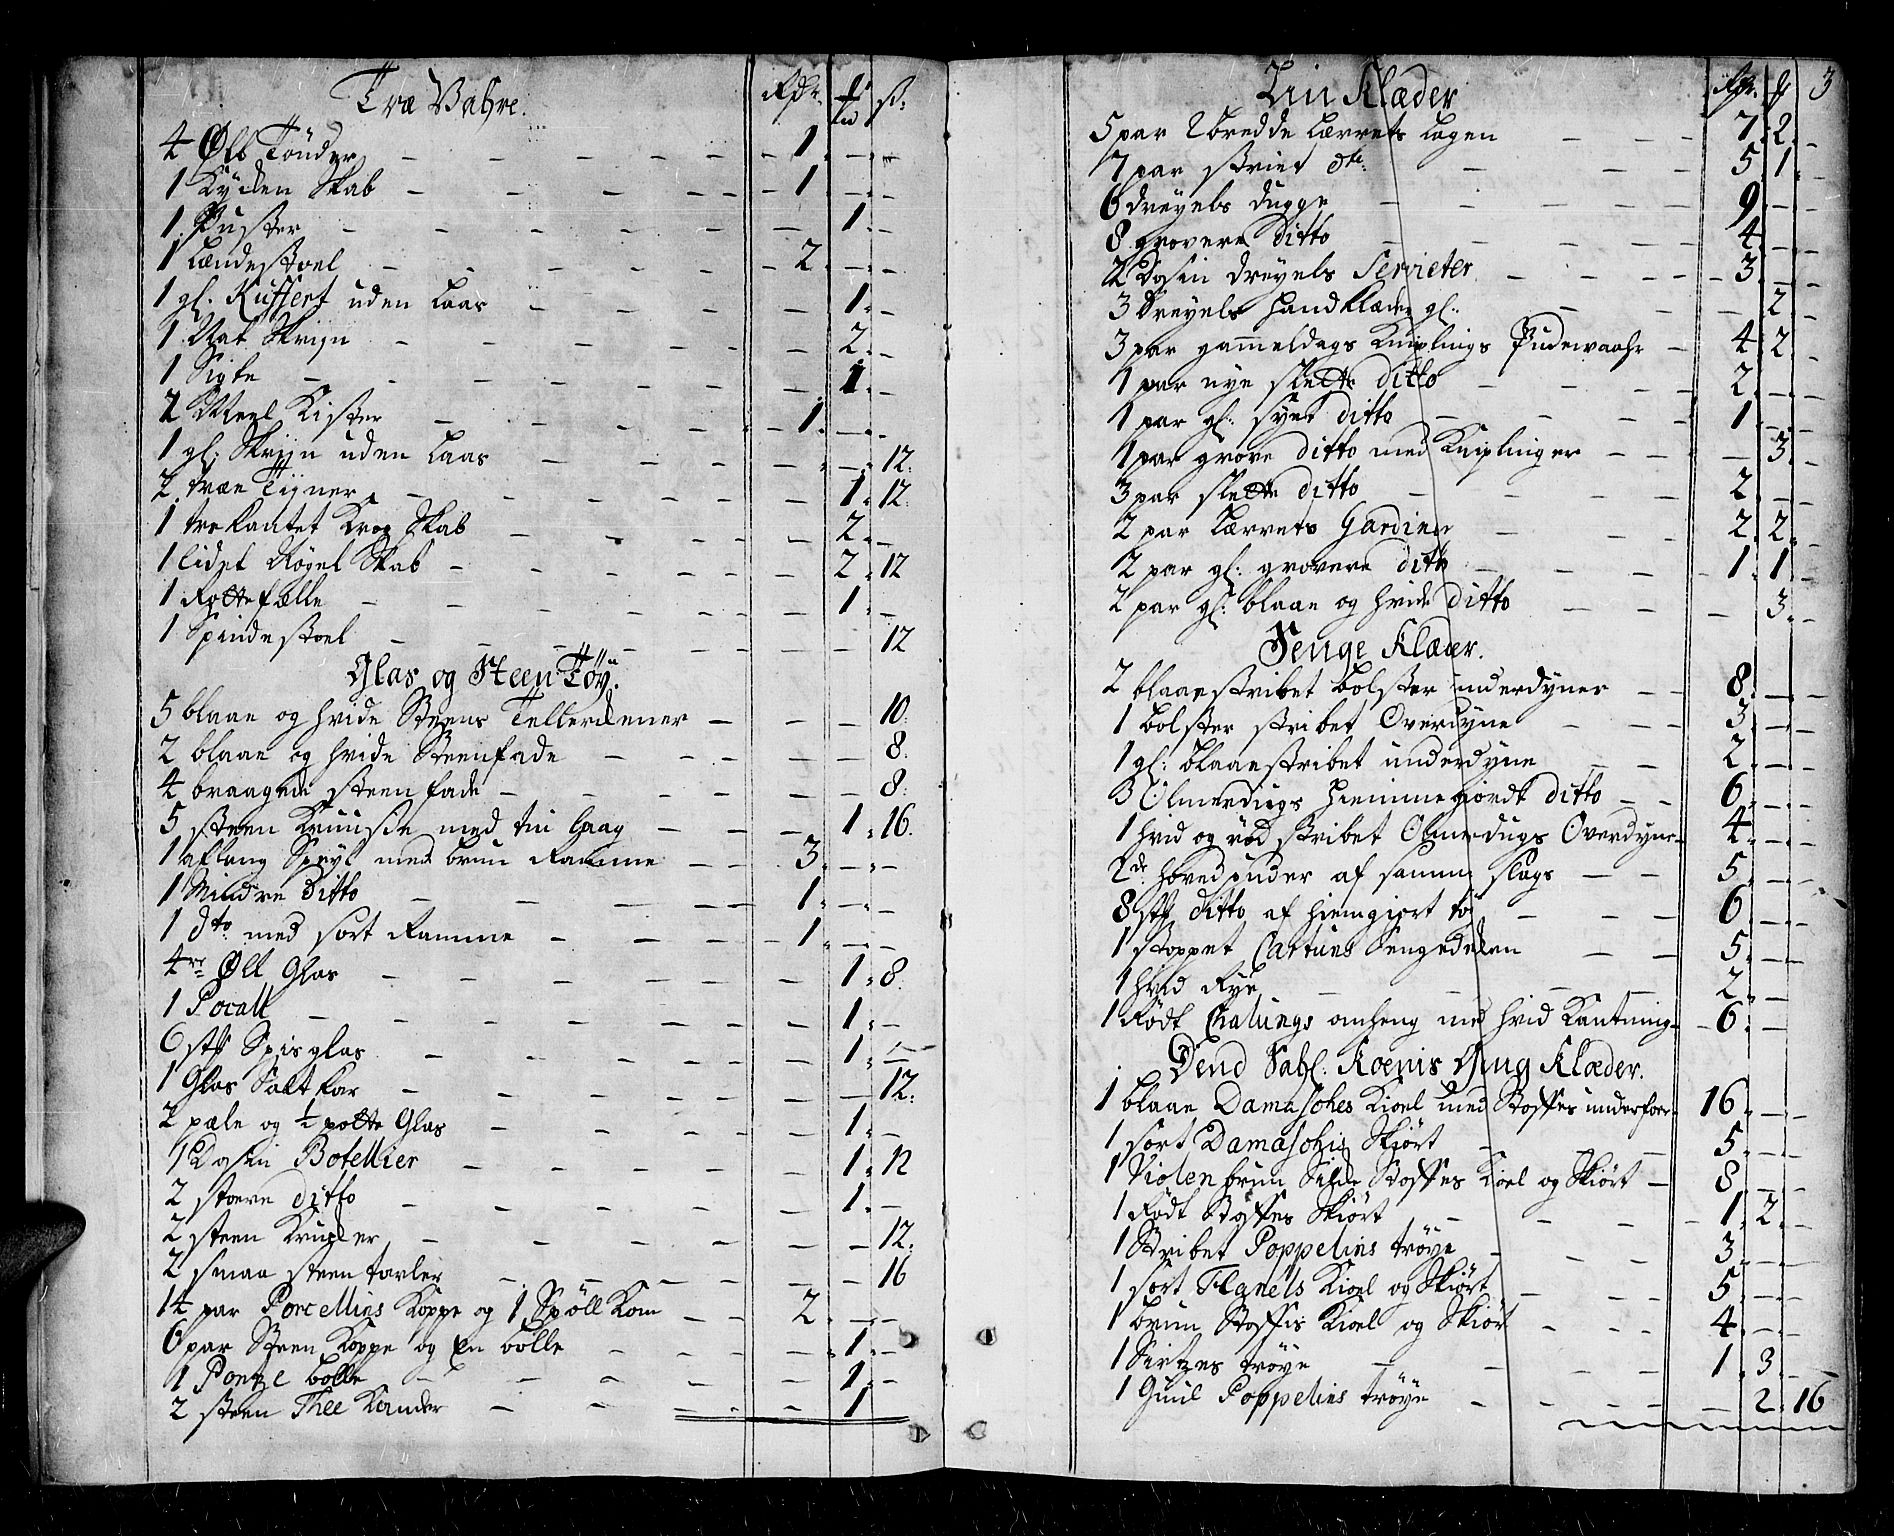 Træ Vahre. Rdr. ß:
4 Øll Tönder - 1. - -
1 Kycken Skab - 1. - -
1 Puster - 1. -
1 Lændestoel - 2. - -
1 gl. Kuffert uden Laas - 1. -
1 Nat Skrijn - 2. -
1 Sigte - 1. -
2 Meel Kister - 1. - -
1 gl: Skrijn uden Laas - 12.
2 træe Tijner - 1. 12.
1 trekantet Krog Skab - 2. -
1 lidet Røgel Skab - 2. 12
1 Rottefælle - 1. -
1 Spindestoel - 12
Glas og Steen Töÿ.
5 blaae og hvide Steens Tellerckener - 10.
2 blaae og hvide Steenfade - 8.
4 braagede steen fade - 8.
5 steen Kruuse med tin Laag - 1. 16.
1 aflang Speyl med brun Ramme - 3. - -
1 Mindre Ditto - 1. - -
1 dto med sort Ramme - 1. - -
4re Øll Glas - 1. 8.
1 Pocall - 1. -
6 stk Spisglas - 1. -
1 Glas Saltkar - 12.
2 pæle og ½ potte Glas - 1. -
1 Dosin Botellier - 1. 12
2 stoere ditto - 1. -
2 steen Krucker - 12.
2 smaa steen tavler - 16
14 par Porcellins Koppe og 1 Spöll Kom - 2. - -
6 par Steen Koppe og En bolle - 1. -
1 Pontze bolle - 1. -
2 steen Thee Kander - 1
3
Lin Klæder Rdr.
5 par 2 bredde Lærrets Lagen - 7. 2. -
7 par striet dto: - 5. 1. -
6 dreyels dugge - 9. - -
8 grovere Ditto - 4. - -
2 Dosin dreyels Servieter - 3. - -
3 Dreyels Handklæde gl: - 2. -
3 par gammeldags Kniplings Pudewaahr - 4. 2. -
1 par nye slette ditto - 2. - -
1 par gl: syet ditto - 1. - -
1 par grove ditto med Kniplinger - 3. -
3 par slette ditto - 2. - -
2 par Lærrets Gardiner - 2. 2. -
2 par gl: grovere ditto - 1. 1. -
2 par gl: blaae og hvide Ditto - 3. -
Senge Klæder.
2 blaaestribet bolster underdyner - 8. - -
1 bolster stribet Overdyne - 3. - -
1 gl: blaaestribet underdyne - 2. - -
3 Olmerdugs Hiemmegiordt ditto - 6. - -
1 hvid og röd stribet Olmerdugs Overdyne - 4. - -
2de hovedpuder af samme slags - 5. - -
8 stk ditto af hiemgiort töj - 6. - -
1 stoppet Cartuns Sengedecken - 5. - -
1 hvid Rye - 2. -
1 Rödt Chalungs omheng med hvid Kantning - 6. -
Dend Sahl. Koenis Gang Klæder.
1 blaae Damaskes Kioel med Stoffes underfoer - 16. - -
1 sort Damaskis Skiört - 5. - -
1 Violenbrun Silke Stoffes Kioel og Skiört - 8 - -
1 Rödt Stoffes Skiört - 1. 2. -
1 Stribet Poppelins tröye - 3. - -
1 sort Flanels Kioel og Skiört - 5. - -
1 brun Stoffis Kioel og Skiört - 4. - -
1 Sirtzes tröye - 1. 3. -
1 Guul Poppelins tröye - 2. 16